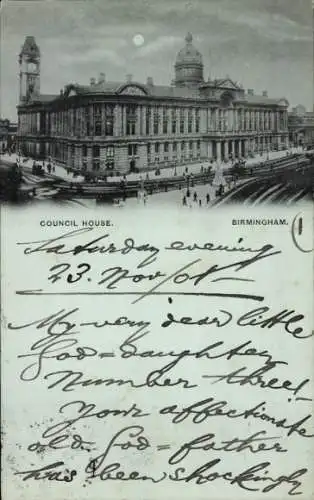 COUNCIL HOUSE. BIRMINGHAM.
1
Saturday evening
23. Nov/01-
My very dear little
God=daughter
Number three!
Your affectionate
old God=father
has been shockingly